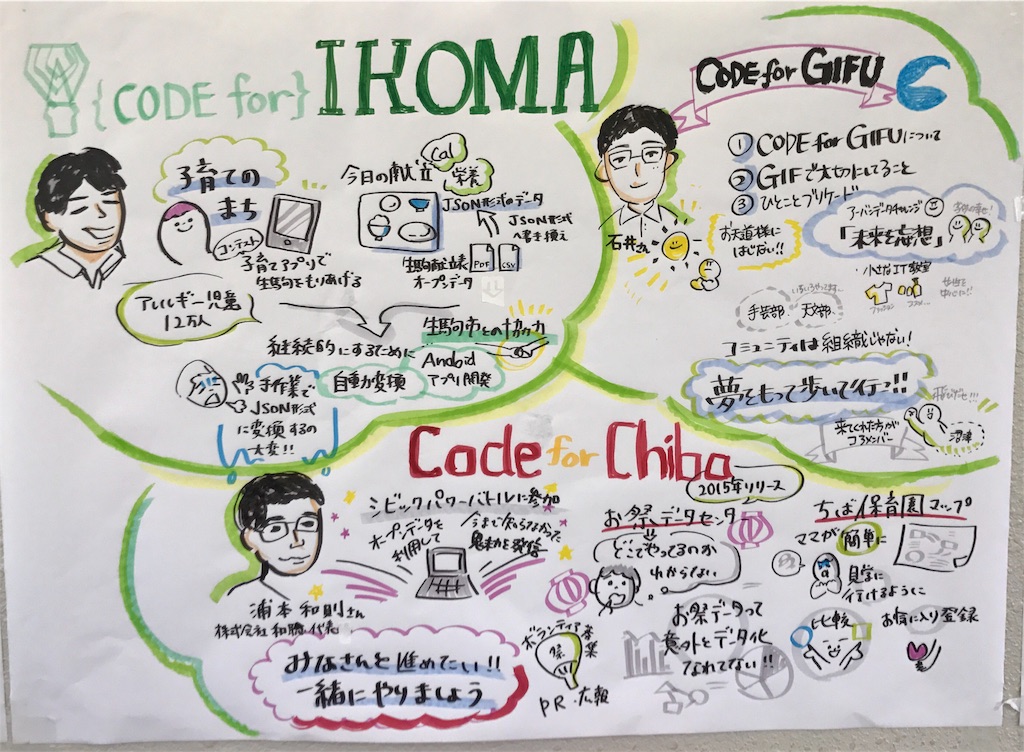 {CODE for} IKOMA
子育ての
まち
コンテスト
子育てアプリで
生駒をもりあげる
アレルギー児童
12万人
今日の献立
Cal
栄養
JSON形式のデータ
JSON形式
へ書き換え
PDF
CSV
生駒献立表
オープンデータ
生駒市との協力
継続的にするために
自動変換
Android
アプリ開発
手作業で
JSON形式
に変換するの
大変!!
CODE for GIFU
石井さん
① CODE for GIFUについて
② GIFで大切にしてること
③ ひとことブリゲード
お天道様に
はじない!!
アーバンデータチャレンジ
「未来を妄想」
小さなIT教室
ファッション
いろいろやってます…
手芸部、天文部、
コミュニティは組織じゃない!
夢をもって歩いて行こ!!
来てくれた方が
コアメンバー
沼津
Code for Chiba
浦本和則さん
株式会社和聴 代表
みなさんと進めたい!!
一緒にやりましょう
シビックパワーバトルに参加
オープンデータを
利用して
今まで知らなかった
魅力を発信
2015年リリース
お祭データセンタ
どこでやってるのか
わからない
お祭データって
意外とデータ化
なれてない!!
ボランティア
祭
PR・広報
ちば保育園マップ
ママが簡単に
見学に
行けるように
比較
お気に入り登録